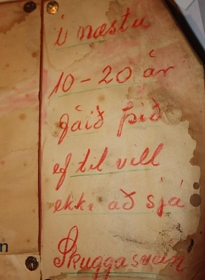 í næstu
10-20 ár
fáið þið
ef til vill
ekki að sjá
Skuggasvein
n